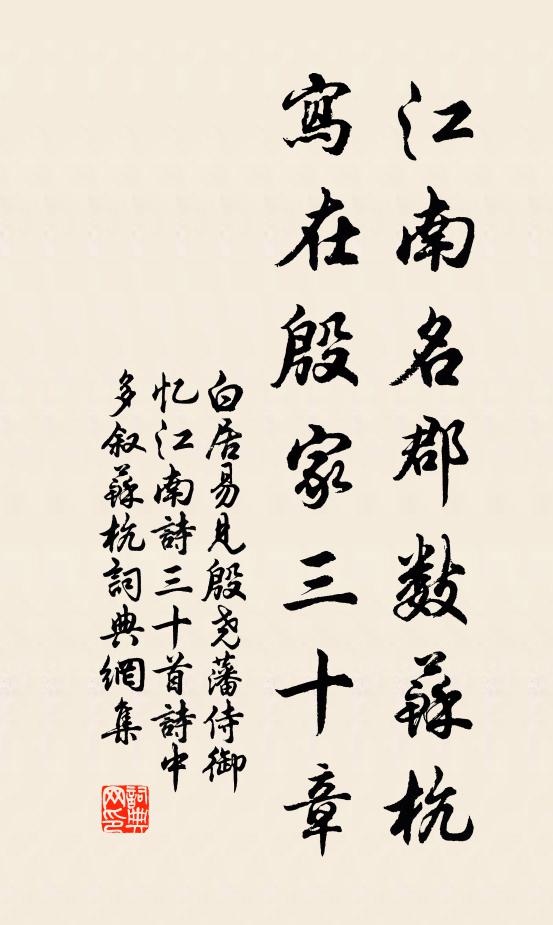 江南名郡數蘇杭
寫在殷家三十章
白居易見殷尧藩侍御
忆江南詩三十首詩中
多叙蘇杭詞典網集
詞典网印